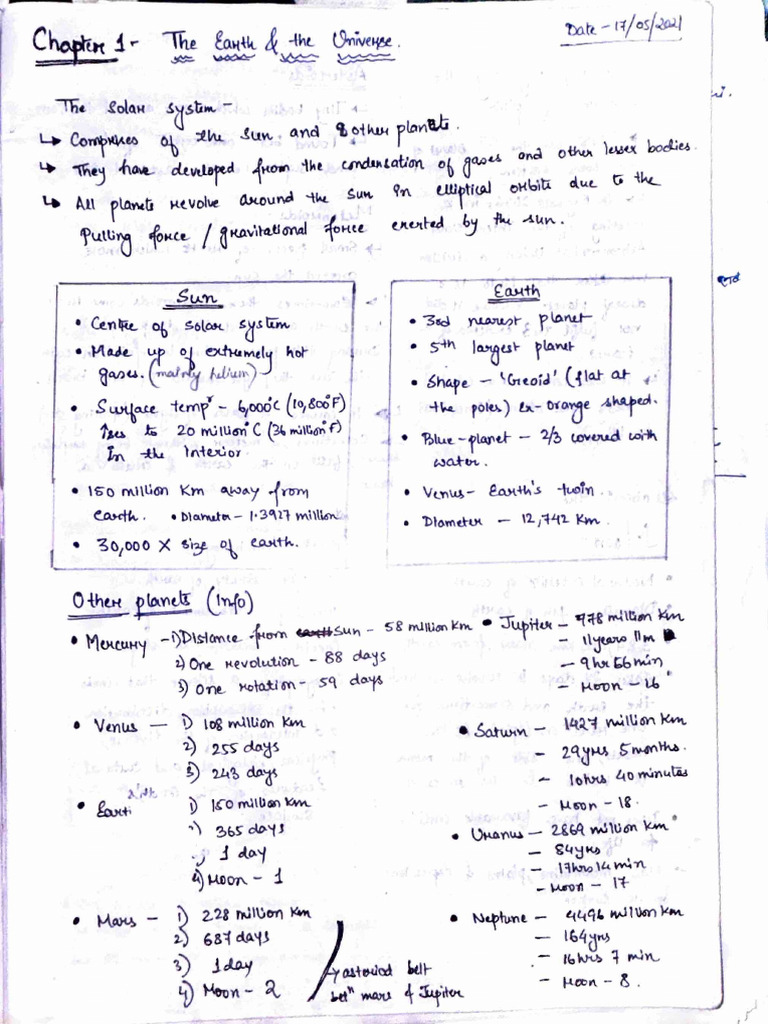 Chapter 1- The Earth & the Universe.
Date - 17/05/2021
The solar system -
↳ Comprises of the sun and 8 other planets.
↳ They have developed from the condensation of gases and other lesser bodies.
↳ All planets revolve around the sun in elliptical orbits due to the
Pulling force / gravitational force exerted by the sun.
Sun
• Centre of solar system
• Made up of extremely hot
gases. (mainly helium)
• Surface tempr - 6,000°C (10,800°F)
to 20 million°C (36 million°F)
In the Interior.
• 150 million Km away from
earth. • Diameter - 1.3927 million
• 30,000 X size of earth.
Earth
• 3rd nearest planet
• 5th largest planet
• Shape - 'Geoid' (flat at
the poles) Ex- orange shaped.
• Blue-planet - 2/3 covered with
water.
• Venus - Earth's twin
• Diameter - 12,742 Km.
Other planets (Info)
• Mercury - 1) Distance from Sun - 58 million Km
2) One revolution - 88 days
3) One rotation - 59 days
• Venus - 1) 108 million Km
2) 255 days
3) 243 days
• Earth 1) 150 million Km
365 days
1 day
4) Moon - 1
• Mars - 1) 228 million Km
2) 687 days
3) 1 day
4) Moon - 2
→ asteriod belt
betn mars & Jupiter
• Jupiter - 778 million Km
- 11 years 11m
- 9 hr 56 min
- Moon - 16
• Saturn - 1427 million Km
- 29 yrs 5 months.
- 10 hrs 40 minutes
- Moon - 18.
• Uranus - 2869 million Km
- 84 yrs
- 17 hrs 14 min
- Moon - 17
• Neptune - 4496 million Km
- 164 yrs
- 16 hrs 7 min
- Moon - 8.